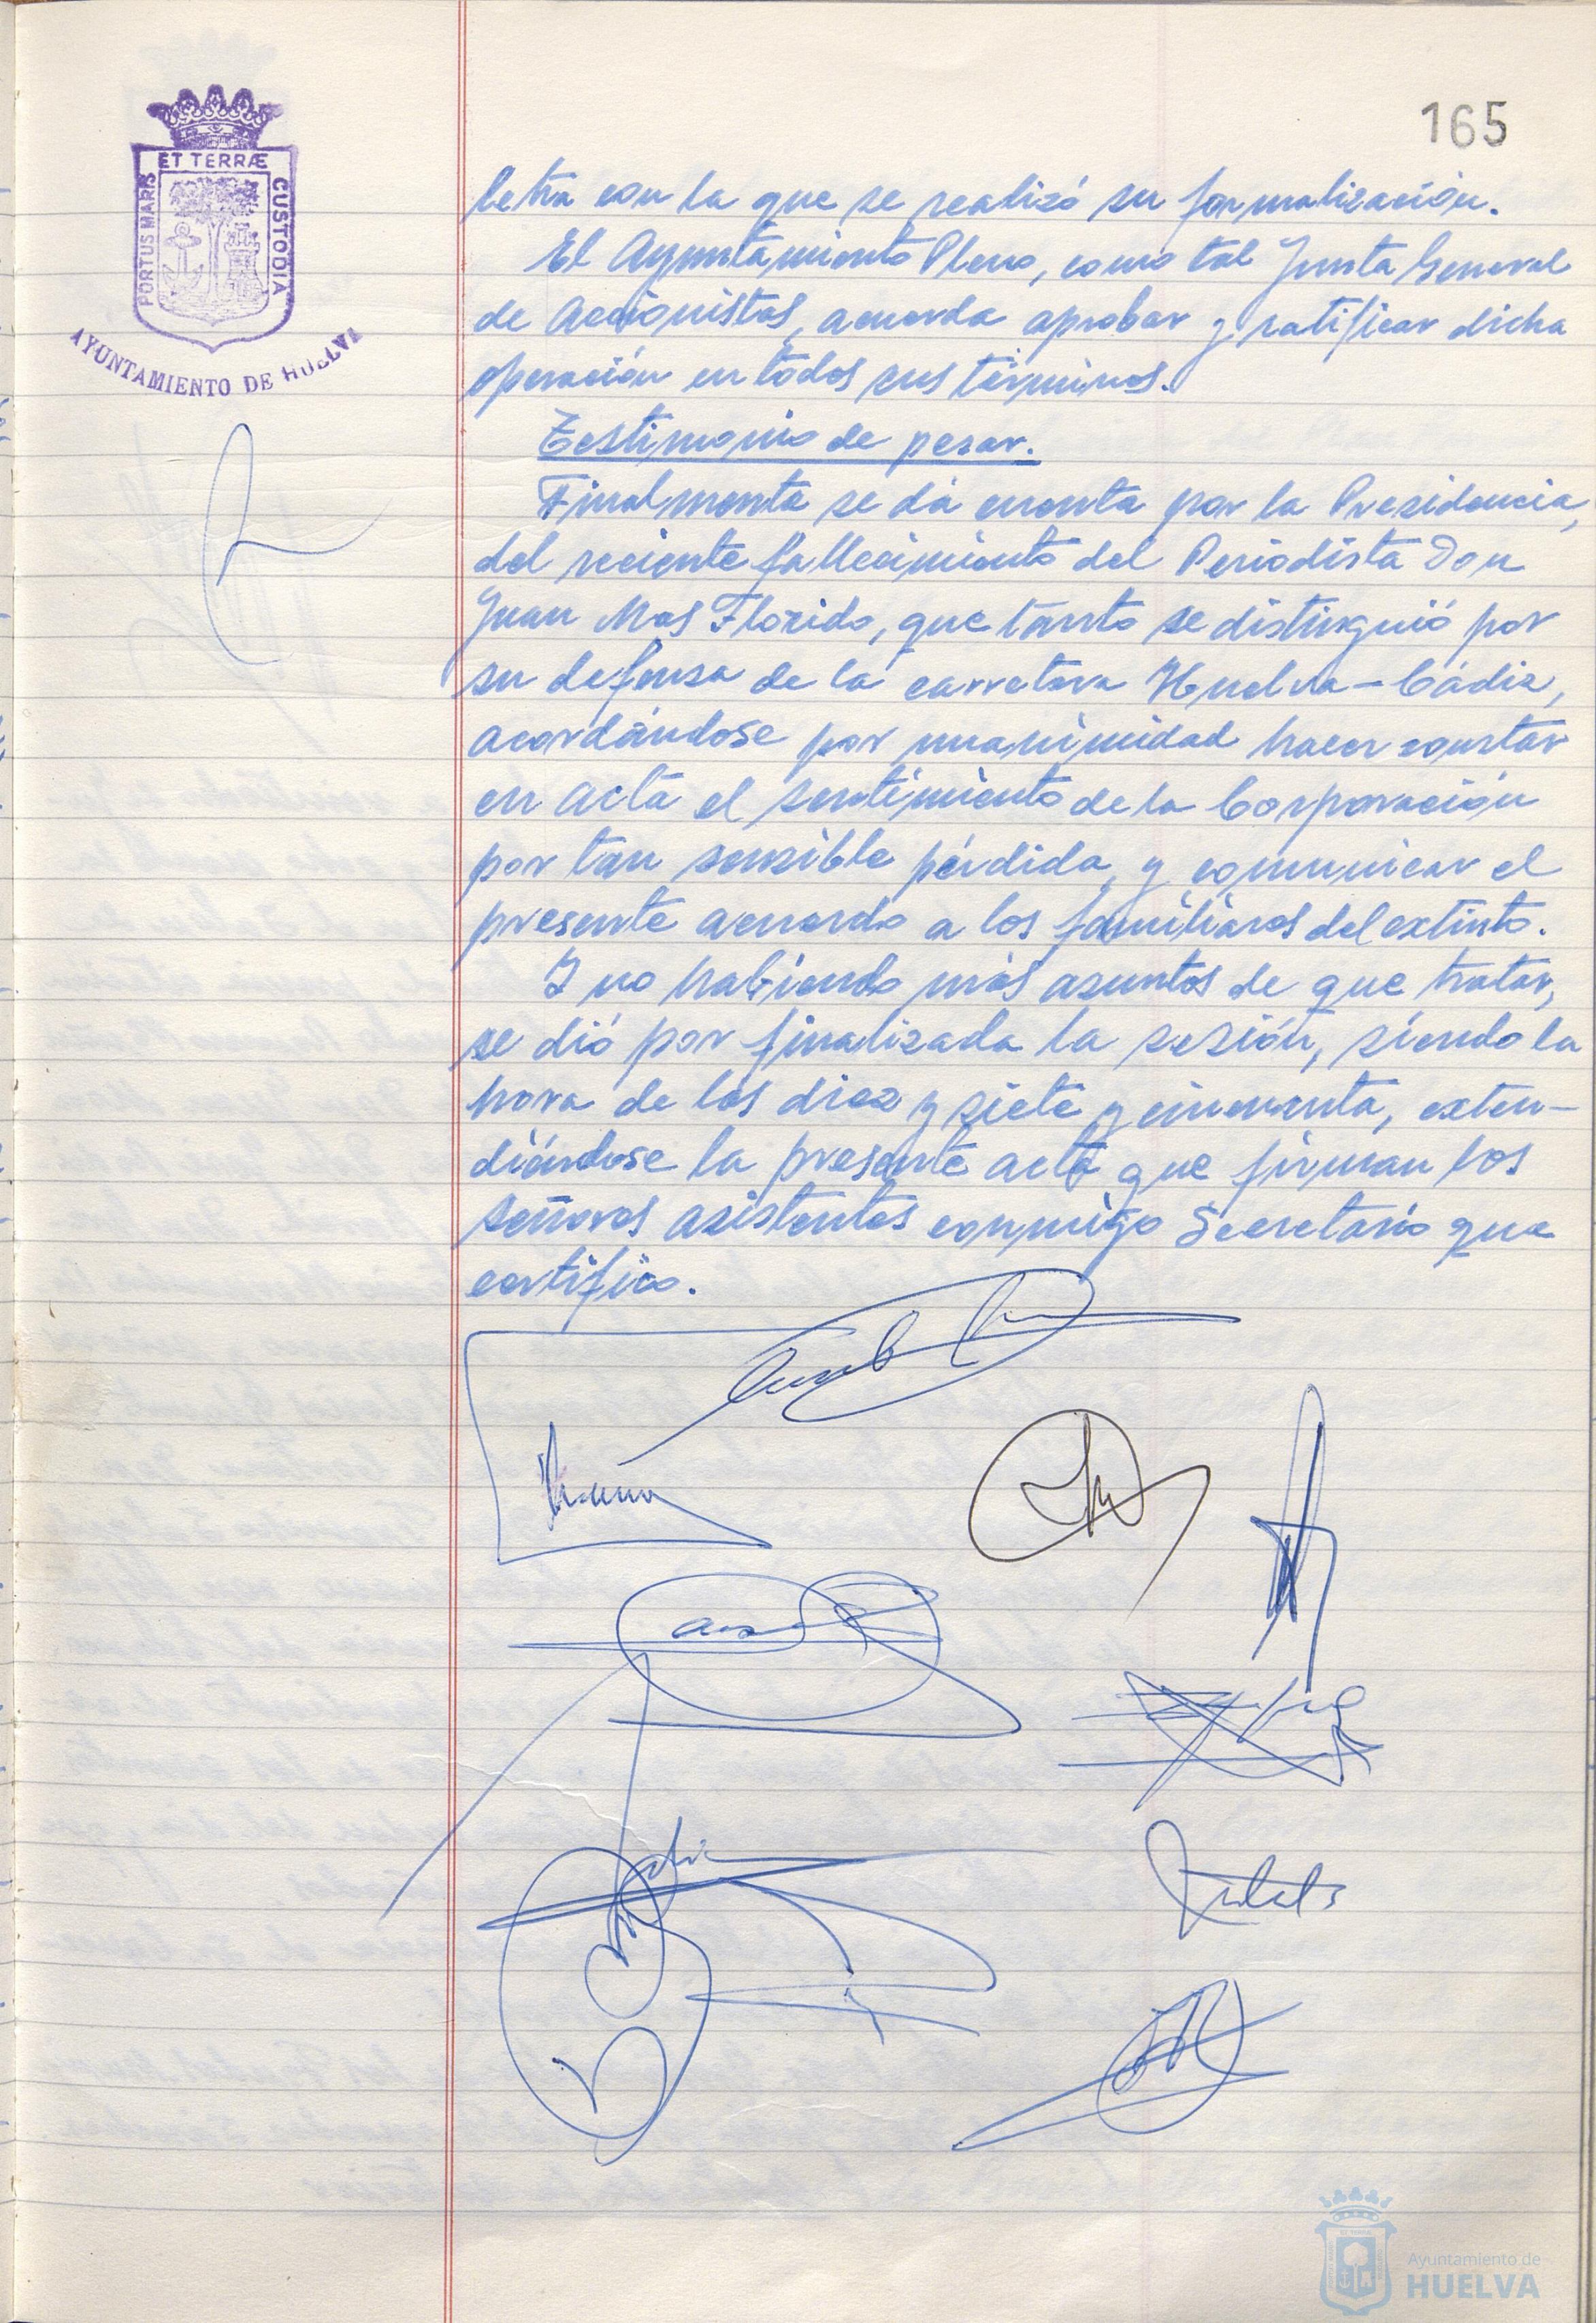 165
ET TERRÆ
PORTUS MARIS
CUSTODIA
AYUNTAMIENTO DE HUELVA
letra con la que se realizó su formalización.
El Ayuntamiento Pleno, como tal Junta General
de Accionistas, acuerda aprobar y ratificar dicha
operación en todos sus términos.
Testimonio de pesar.
Finalmente se dá cuenta por la Presidencia,
del reciente fallecimiento del Periodista Don
Juan Mas Florido, que tanto se distinguió por
su defensa de la carretera Huelva-Cádiz,
acordándose por unanimidad hacer constar
en acta el sentimiento de la Corporación
por tan sensible pérdida, y comunicar el
presente acuerdo a los familiares del extinto.
Y no habiendo más asuntos de que tratar,
se dió por finalizada la sesión, siendo la
hora de las diez y siete y cincuenta, exten-
diéndose la presente acta que firman los
señores asistentes conmigo Secretario que
certifico.
Ayuntamiento de
HUELVA